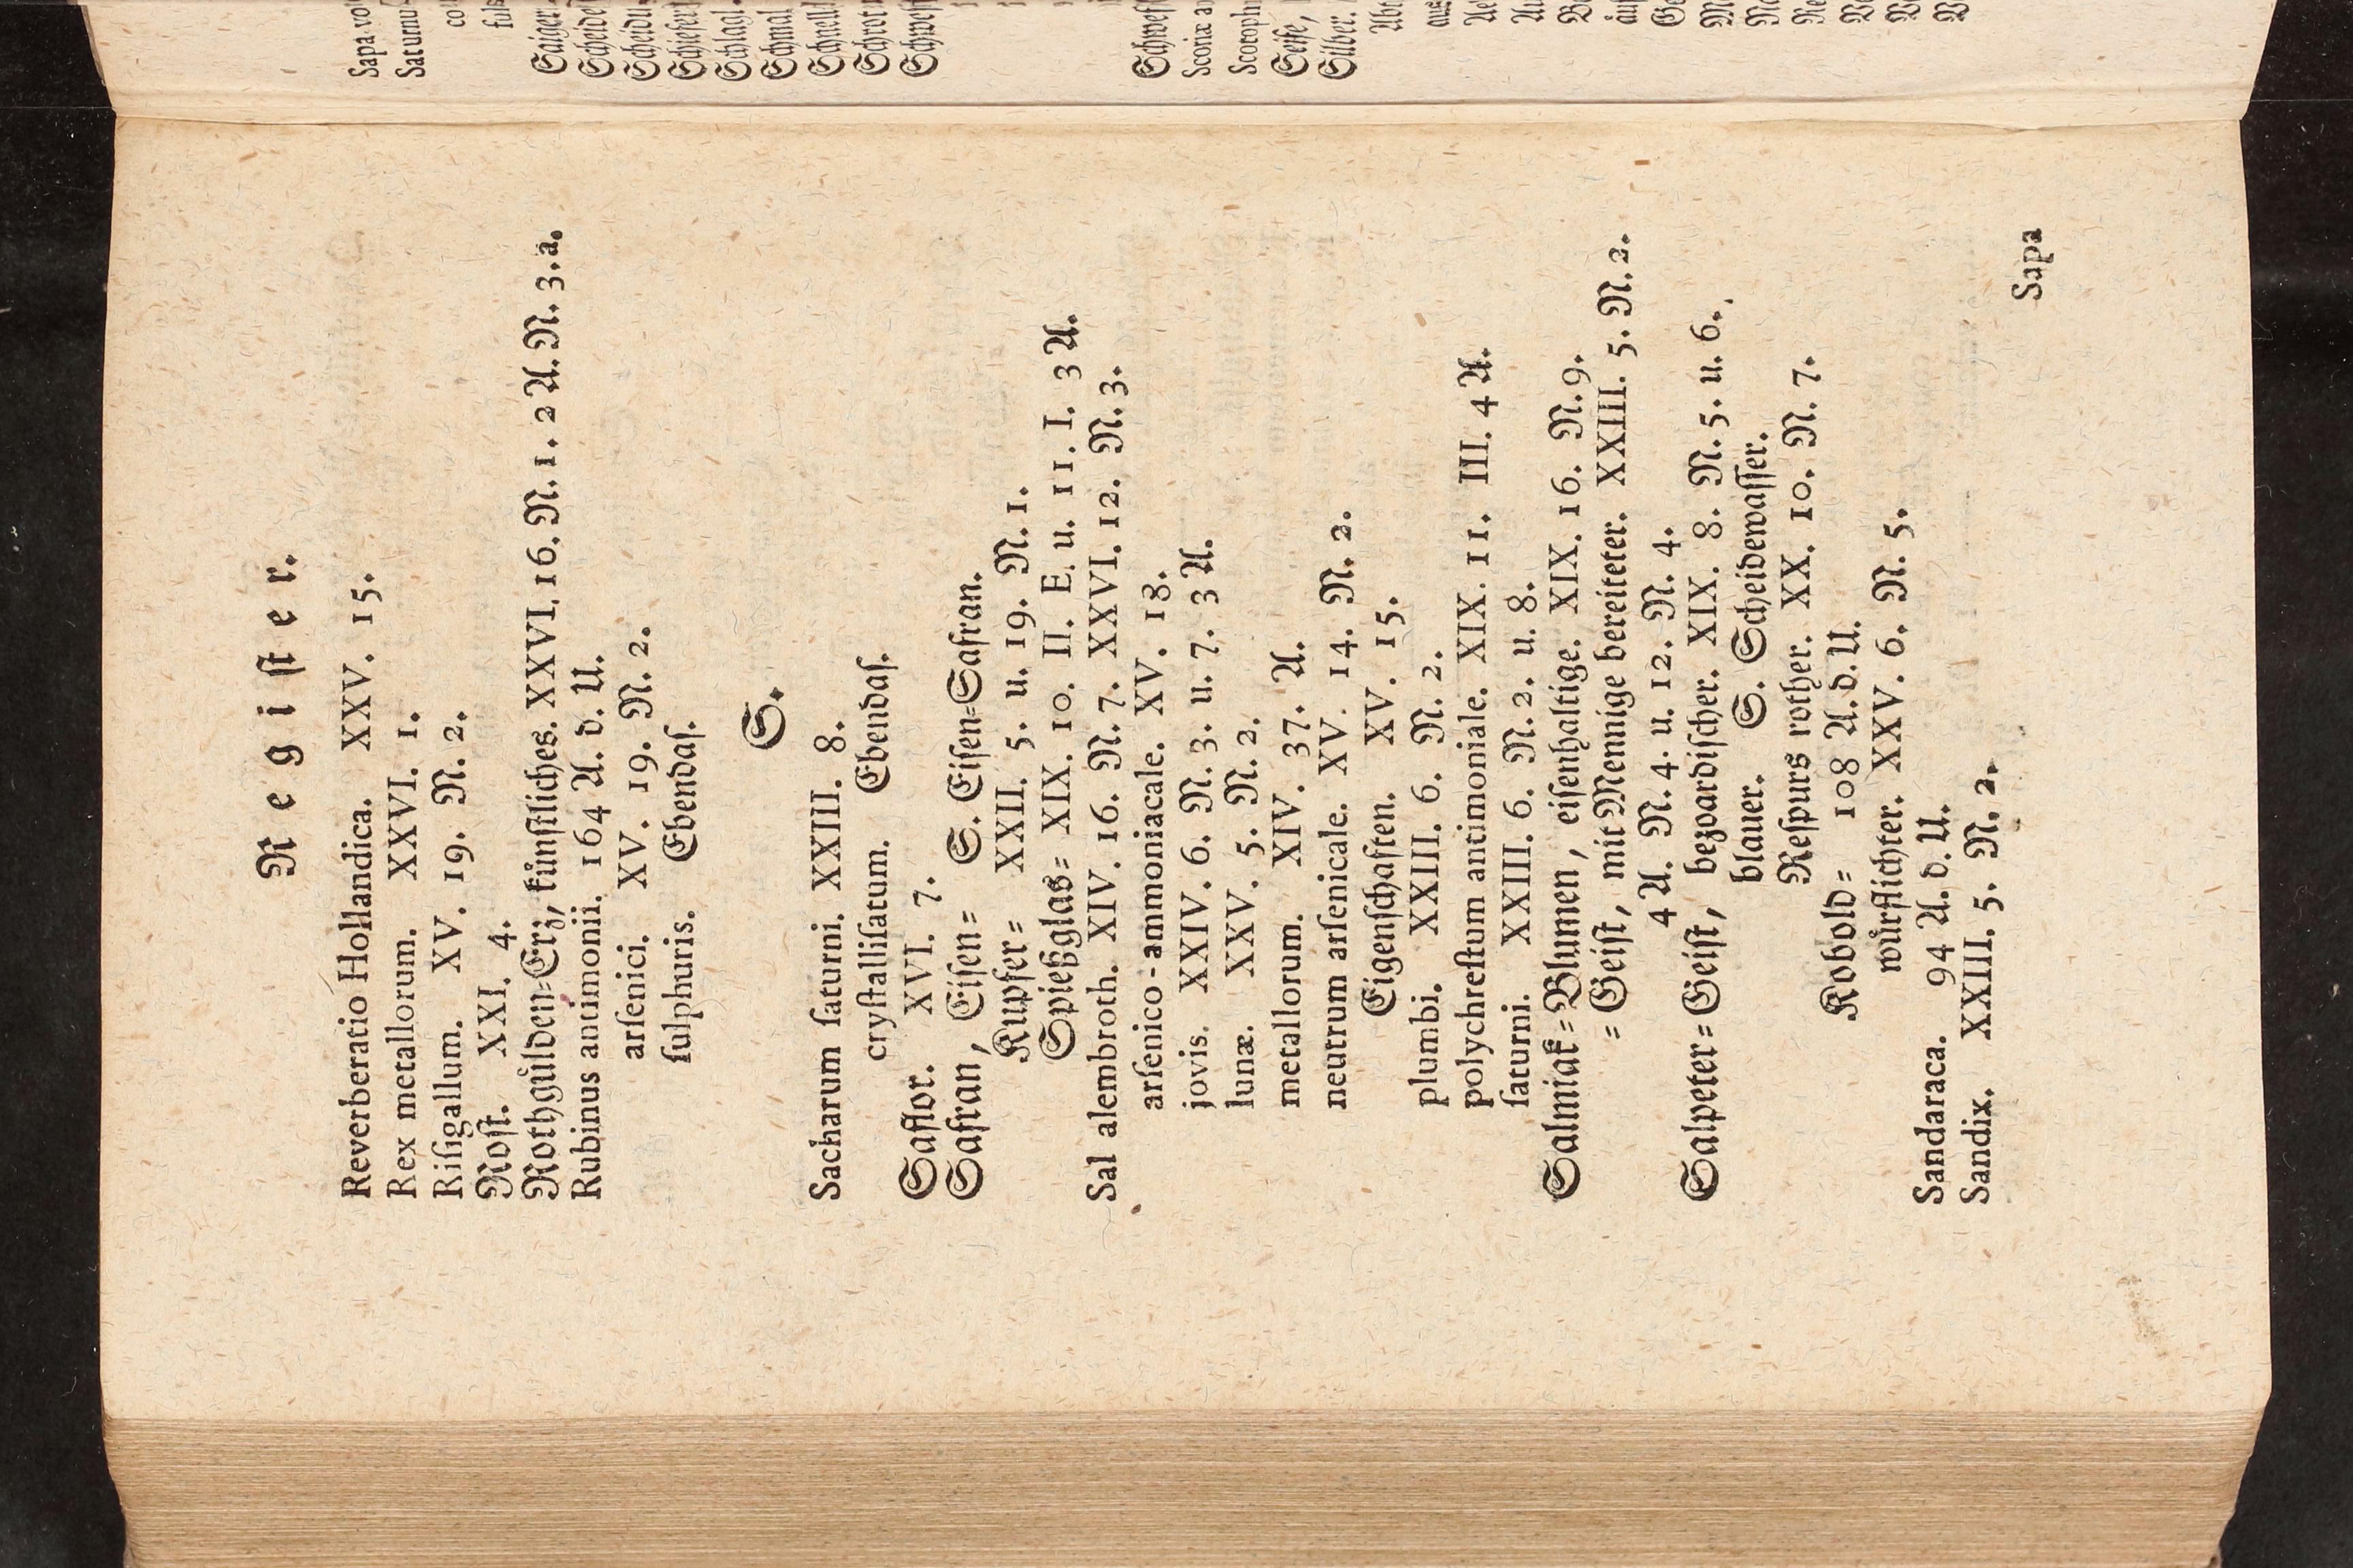 Regiſter.
Reverberatio Hollandica. XXV. 15.
Rex metallorum. XXVI. 1.
Riſigallum. XV. 19. N. 2.
Roſt. XXI. 4.
Rothguͤlden=Erz, kuͤnſtliches. XXVI. 16. N. 1. 2 A. N. 3. a.
Rubinus antimonii. 164 A. d. U.
arſenici. XV. 19. N. 2.
ſulphuris. Ebendaſ.
S.
Sacharum ſaturni. XXIII. 8.
cryſtalliſatum. Ebendaſ.
Saflor. XVI. 7.
Safran, Eiſen= S. Eiſen=Safran.
Kupfer= XXII. 5. u. 19. N. 1.
Spießglas= XIX. 10. II. E. u. 11. I. 3 A.
Sal alembroth. XIV. 16. N. 7. XXVI. 12. N. 3.
arſenico-ammoniacale. XV. 18.
jovis. XXIV. 6. N. 3. u. 7. 3 A.
lunæ. XXV. 5. N. 2.
metallorum. XIV. 37. A.
neutrum arſenicale. XV. 14. N. 2.
Eigenſchaften. XV. 15.
plumbi. XXIII. 6. N. 2.
polychreſtum antimoniale. XIX. 11. III. 4 A.
ſaturni. XXIII. 6. N. 2. u. 8.
Salmiak=Blumen, eiſenhaltige. XIX. 16. N. 9.
=Geiſt, mit Mennige bereiteter. XXIII. 5. N. 2.
4 A. N. 4. u. 12. N. 4.
Salpeter=Geiſt, bezoardiſcher. XIX. 8. N. 5. u. 6.
blauer. S. Scheidewaſſer.
Reſpurs rother. XX. 10. N. 7.
Kobold= 108 A. d. U.
wuͤrflichter. XXV. 6. N. 5.
Sandaraca. 94 A. d. U.
Sandix. XXIII. 5. N. 2.
Sapa
Sapa
Saturnu
co
Saiger
Schlagl
Schmal
Schnell
Schwef
Scoriæ
Seife,
Silber.
aus